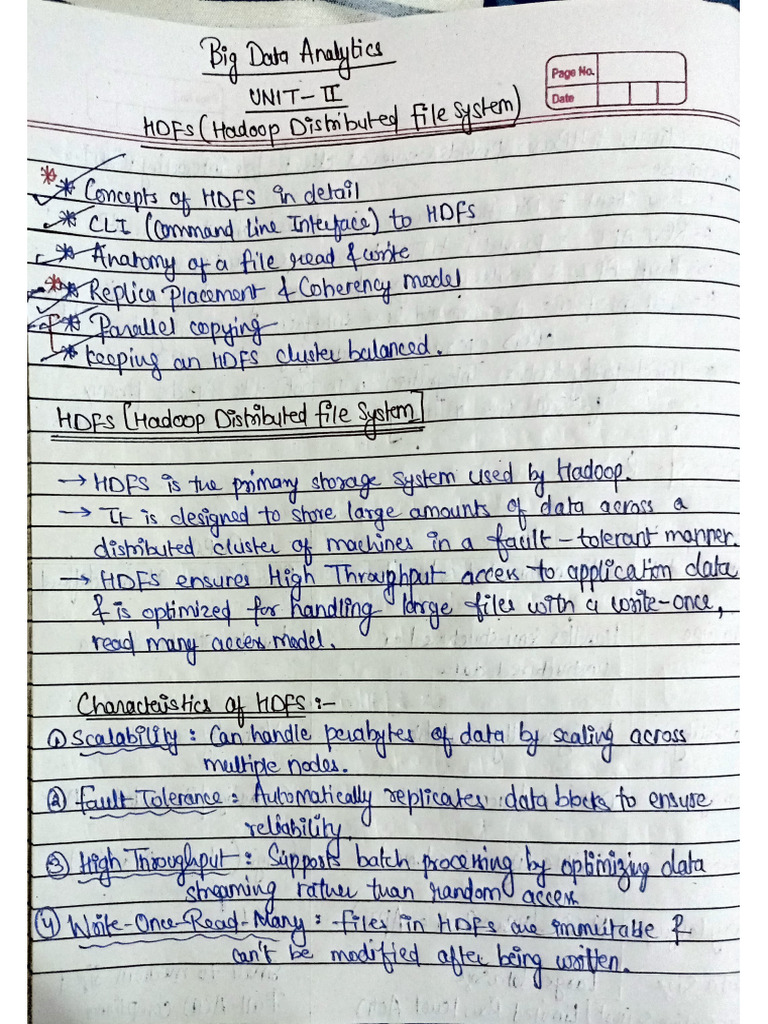 Big Data Analytics
Page No.
Date
UNIT-II
HDFS (Hadoop Distributed File System)
* * Concepts of HDFS in detail
* CLI (Command Line Interface) to HDFS
* Anatomy of a file read & write
* * Replica Placement & Coherency model
* Parallel copying
* Keeping an HDFS cluster balanced.
HDFS [Hadoop Distributed File System]
→ HDFS is the primary storage system used by Hadoop.
→ It is designed to store large amounts of data across a
distributed cluster of machines in a fault-tolerant manner.
→ HDFS ensures High Throughput access to application data
& is optimized for handling large files with a write-once,
read many access model.
Characteristics of HDFS :-
① Scalability : Can handle perabytes of data by scaling across
multiple nodes.
② Fault Tolerance : Automatically replicates data blocks to ensure
reliability.
③ High Throughput : Supports batch processing by optimizing data
streaming rather than random access.
④ Write-Once-Read-Many : files in HDFS are immutable &
can't be modified after being written.